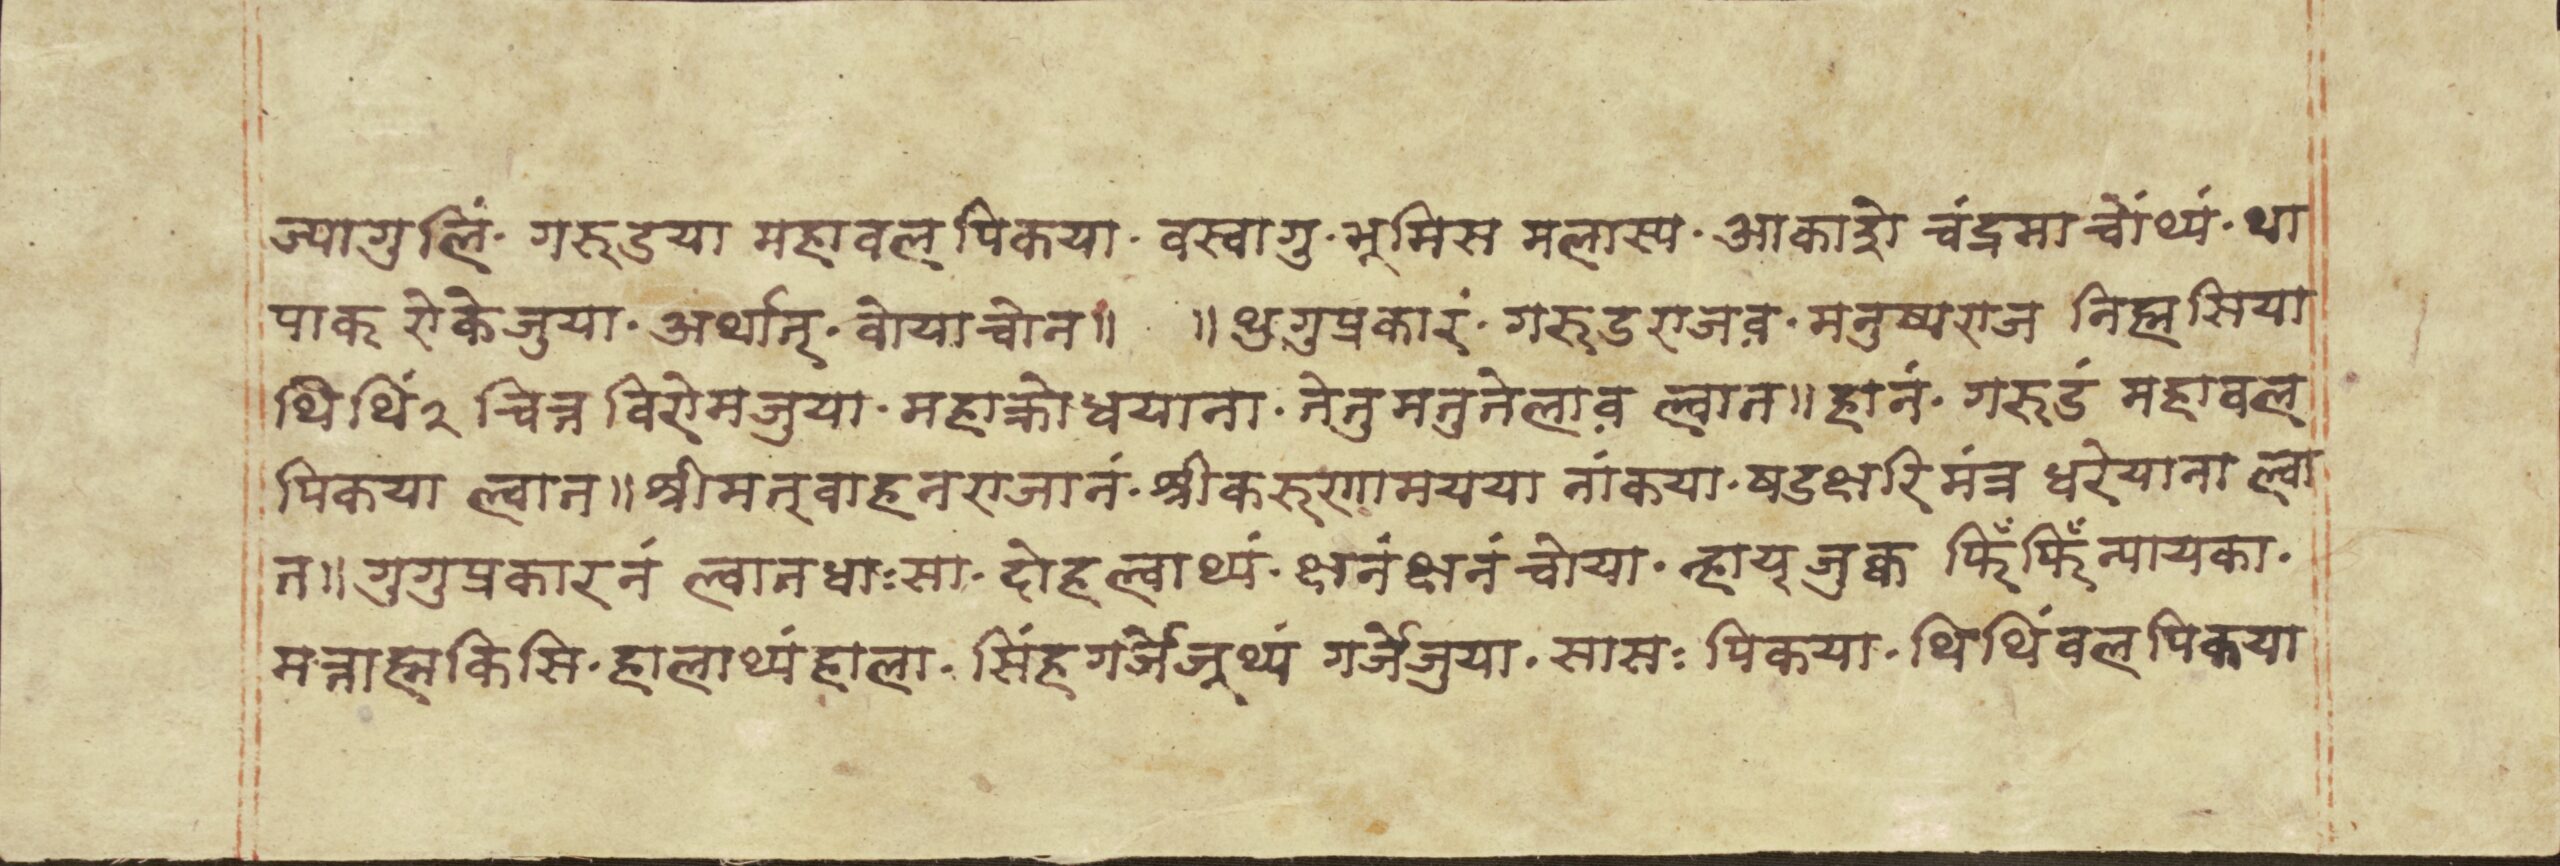 ज्यागुलिं· गरूडया महावल् पिकया· वस्वागु· भूमिस मलास्य· आकाशे चंद्रमा चोंथ्यं· था
पाक् रोके जुया· अर्थात्· वोया चोन॥ ॥थुगु प्रकारं· गरूड राजव़· मनुष्यराज निह्म सिया
थिथिं२ चित्त विरोम जुया· महाक्रोधयाना· नेनुमनुनेलाव़ ल्वान॥ हानं· गरूडं महावल्
पिकया ल्वान॥ श्रीमत् वाहनराजानं· श्रीकरूणामयया नांकया· षडक्षरि मंत्र धरेयाना ल्वा
न॥ गुगुप्रकारनं ल्वानधाःसा· दोहल्वाथ्यं· क्षनंक्षनं चोया· न्हाय् जुक्व फिँफिँन्यायका·
मत्ताह्म किसि· हालाथ्यंहाला· सिंह गर्जेजूथ्यं गर्जेजुया· सासः पिकया· थिथिं वल पिकया